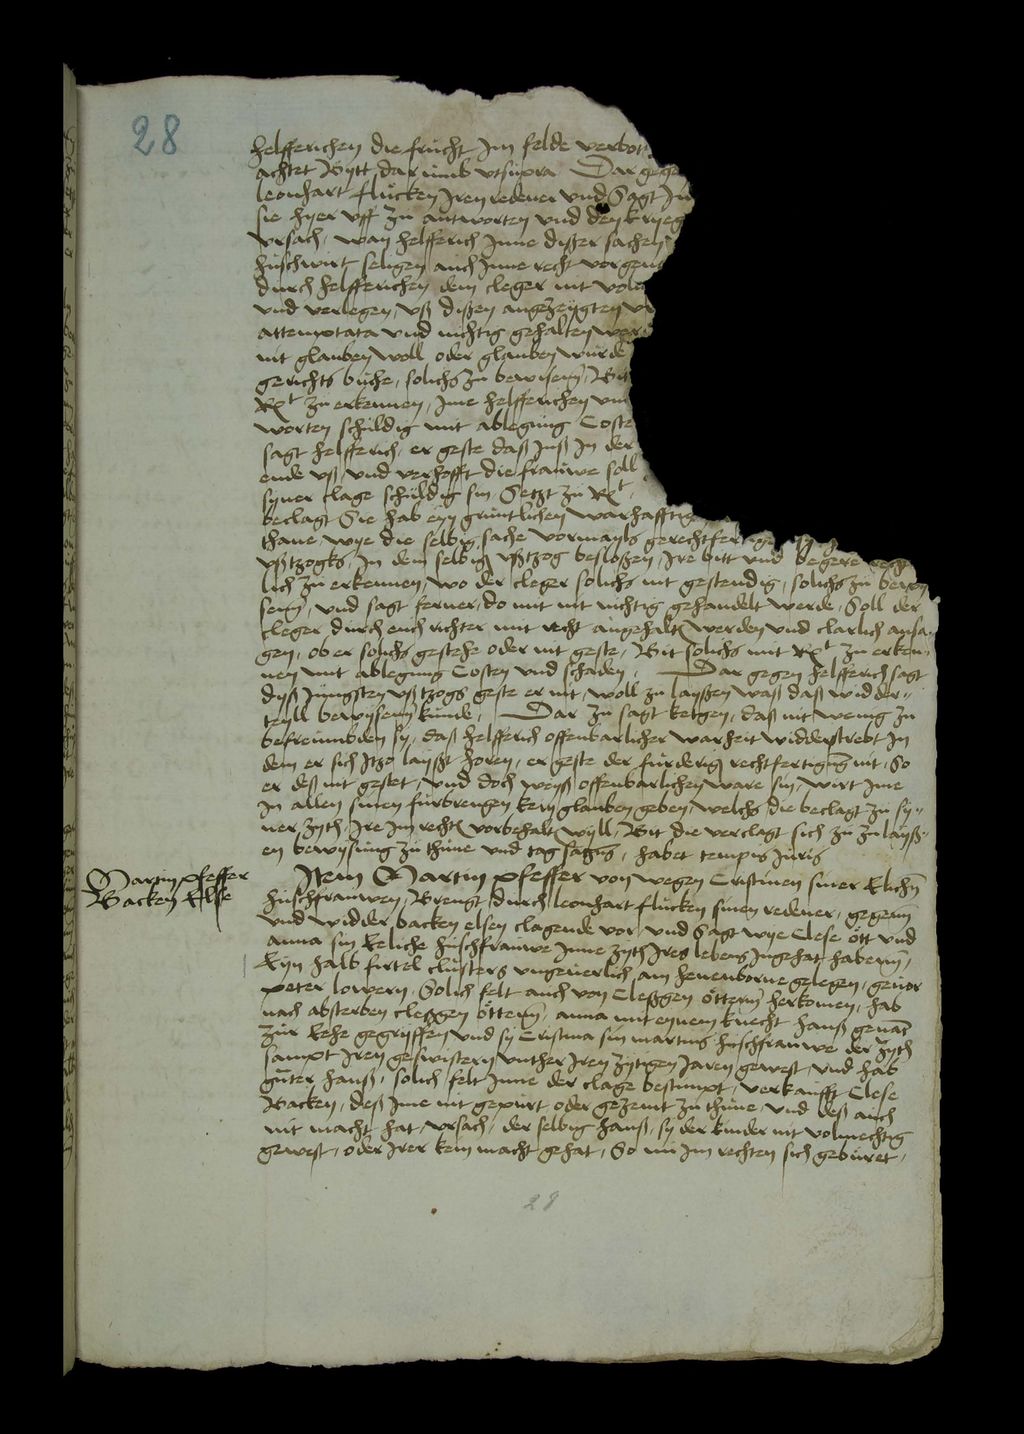 28
helfferichen die frucht Im felde verbot
achtet Bytt dar umb vtsupra Dar gege
leonhart flucken Iren redener vnd Sagt In
sie hyer vff zu antworten vnd den kryeg
vrsach, wan helfferich Inne dißer sachen
hußwirt seligen auch Inne recht vorgen
durch helfferichen dem cleger nit vole
vnd verlegen, vß dißen angezeygten vr
attemptata vnd nichtig gehalten wer
nit glauben woll oder glauben wurde
gerichts buche, solichs zu bewisenn, Bit
Rxt zu erkennen, Ime helfferichen vn
worten schuldig mit ablegung Coste
sagt helfferich, er geste daß Inß In der
ende vß vnd verhofft die frauwe soll
syner clage schuldig sin Setzt zu Rxt
beclagt Sie hab eyn gruntlichen warhafftigen
thane wye die selbig sache vormayls gerechtfertiget
vßtzogks, In dem selbigen vßtzog besloßen, Ire bitt vnd begere
lich zu erkennen, wo der cleger solichs nit gestendig, solichs zu bewy
senn, vnd sagt ferner, do mit nit nichtig gehandelt werde, Soll der
cleger durch euch richter mit recht angehalten werden vnd clarlich ansa
gen, ob er solichs gestehe oder nit geste, Bit solichs mit Rxt zu erken
nen mit ablegung Costen vnd schaden, Dar gegen helfferich sagt
dyß Jungsten vßtzogs geste er nit, woll zu layßen waß daß widder
teyll bewysenn kunde, Dar zu sagt ketgen, daß nit wenig zu
befreumbden sy, daß helfferich offenbarlicher warheit widderstrebt In
dem er sich Itzo layßt horen, er geste der furderigen rechtfertigung nit, So
er deß nit gestet, vnd doch weyß offenbarlichen ware sin, wirt Ime
In allen sinen furbrengen keyn glauben geben, welchs die beclagt zu sy
ner zyth, Ire Im rechten vorbehalten wyll, Bit die verclagt sich zu zu layß
en bewysung zu thune vnd tag habet tempus Iuris
Martin pfeffer
Backen Else
Item Martin pfeffer von wegen Cristinen siner Elichen
hußfrauwen, Brengt durch leonhart flucken sinen redener, gegenn
vnd widder backen elsen clagende vor vnd Sagt wye Clese ött vnd
anna sin Eeliche hußfrauwe Inne zyth Ires lebens Ingehat habenn,
Eyn halb firtel clusters vngeuerlich am heuenborne gelegen, geuor
peter lowern, Solich felt auch von Cleßgen öttenn herkomen, hab
nach absterben cleßgen öttenn, anna mit eynem knecht hanß genant
zur Eehe gegryffen vnd sy Cristina sin martins hußfrauwe der zyth
sampt Iren geswistern vnther Iren zytigen Jaren gewest, vnd hab
guter hanß, solich felt Inne der clage bestimpt, verkaufft Clese
Backen, deß Ime nit gepurt oder gezemt zu thune, vnd deß auch
nit macht hat, vrsach, der selbig hanß, sy der kinder nit volmechtig
gewest, oder Irer kein macht gehat, So nu Im rechten sich geburet,
28